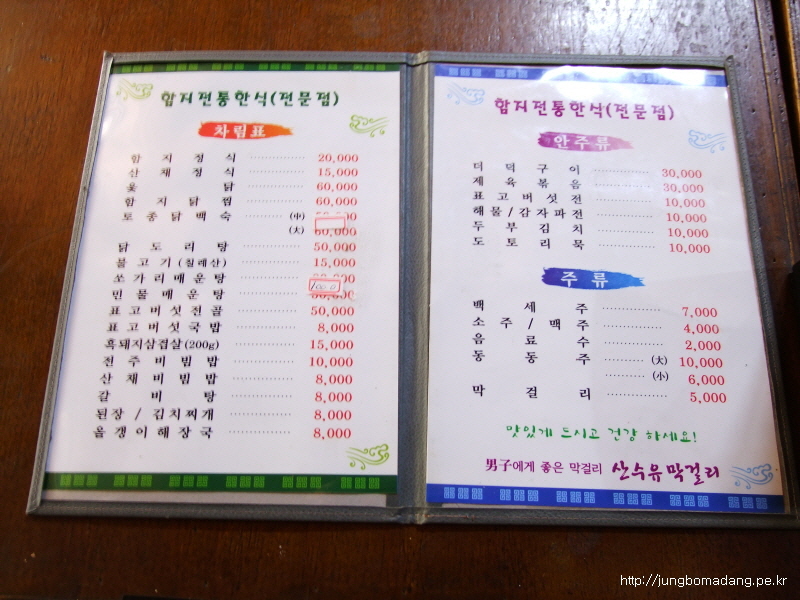 함지전통한식(전문점)
차림표
함지정식 20,000
산채정식 15,000
옻닭 60,000
함지닭찜 60,000
토종닭백숙 (中)
(大) 60,000
닭도리탕 50,000
불고기(칠레산) 15,000
쏘가리매운탕
민물매운탕
표고버섯전골 50,000
표고버섯국밥 8,000
흑돼지삼겹살(200g) 15,000
전주비빔밥 10,000
산채비빔밥 8,000
갈비탕 8,000
된장/김치찌개 8,000
올갱이해장국 8,000
함지전통한식(전문점)
안주류
더덕구이 30,000
제육볶음 30,000
표고버섯전 10,000
해물/감자파전 10,000
두부김치 10,000
도토리묵 10,000
주류
백세주 7,000
소주/맥주 4,000
음료수 2,000
동동주 (大) 10,000
(小) 6,000
막걸리 5,000
맛있게 드시고 건강 하세요!
男子에게 좋은 막걸리 산수유막걸리
http://jungbomadang.pe.kr